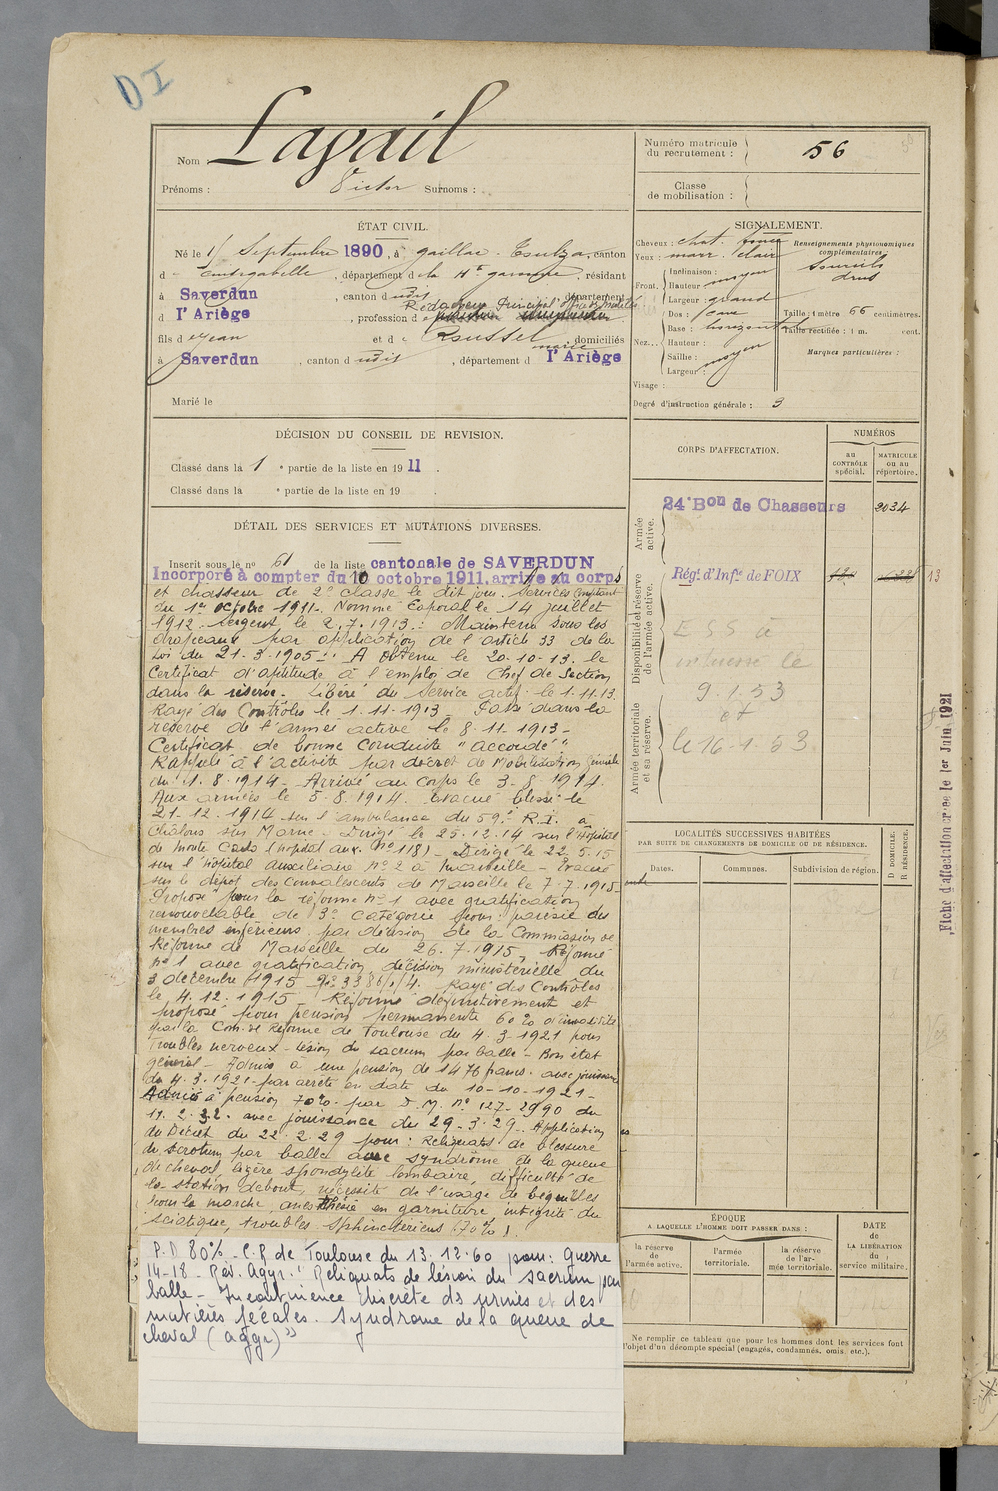 DI
Nom : Lapail
Prénoms : Victor Surnoms :
Numéro matricule
du recrutement : 56
Classe
de mobilisation :
ÉTAT CIVIL.
Né le 1er Septembre 1890, à gaillac-Toulza, canton
d Cintegabelle, département d la Hte garonne, résidant
à Saverdun, canton d udit, département
d l'Ariège, profession d Rédacteur Principal
fils d e Jean et d e Roussel domiciliés
mairie
à Saverdun, canton d udit, département d l'Ariège
Marié le
SIGNALEMENT.
Cheveux : chat. foncé
Yeux : marr. clair
Front. Inclinaison :
Hauteur : moyen
Largeur : grand
Nez... Dos : cave
Base : horizontal
Hauteur :
Saillie : moyen
Largeur :
Visage :
Degré d'instruction générale : 3
Renseignements physionomiques
complémentaires :
Sourcils
drus
Taille : 1 mètre 66 centimètres.
Taille rectifiée : 1 m. cent.
Marques particulières :
DÉCISION DU CONSEIL DE REVISION.
Classé dans la 1e partie de la liste en 1911.
Classé dans la e partie de la liste en 19 .
CORPS D'AFFECTATION.
NUMÉROS
au
CONTRÔLE
spécial.
MATRICULE
ou au
répertoire.
Armée
active.
24e Bon de Chasseurs 2034
Disponibilité et réserve
de l'armée active.
Régt d'Infie de FOIX
13
ESS à
intéressé le
9.1.53
et
le 16-1-53
Armée territoriale
et sa réserve.
DÉTAIL DES SERVICES ET MUTATIONS DIVERSES.
Inscrit sous le no 61 de la liste cantonale de SAVERDUN
Incorporé à compter du 10 octobre 1911, arrivé au corps
et chasseur de 2e classe le dit jour. Services comptant
du 1er octobre 1911. Nommé Caporal le 14 juillet
1912. Sergent le 2.7.1913. Maintenu sous les
drapeaux par application de l'article 33 de la
Loi du 21-3-1905. A obtenu le 20-10-13. le
Certificat d'aptitude à l'emploi de Chef de Section
dans la réserve. Libéré du service actif le 1.11.13.
Rayé des Contrôles le 1.11.1913. Passé dans la
réserve de l'armée active le 8.11.1913-
Certificat de bonne conduite "accordé".
Rappelé à l'activité par décret de Mobilisation générale
du 1.8.1914- Arrivé au Corps le 3.8.1914.
Aux armées le 5.8.1914. Evacué blessé le
21.12.1914 sur l'ambulance du 59e R.I. à
Chalons sur Marne. Dirigé le 25.12.14 sur l'hôpital
de Monte Carlo (hôpital aux. no 118) - Dirigé le 22.5.15
sur l'hôpital auxiliaire no 2 à Marseille - Evacué
sur le dépôt des convalescents de Marseille le 7.7.1915
Proposé pour la réforme no 1 avec gratification
renouvelable de 3e catégorie pour : parésie des
membres inférieurs par décision de la Commission de
Réforme de Marseille du 26.7.1915, Réformé
no 1 avec gratification, décision ministérielle du
3 décembre 1915 Rayé des Contrôles
le 4.12.1915 - Réformé définitivement et
proposé pour pension permanente 60% d'invalidité
par la Com. de Réforme de Toulouse du 4.3.1921 pour
Troubles nerveux - lésion du sacrum par balle - Bon état
général - Admis à une pension de 1476 francs. avec jouissance
du 4.3.1921 par arrêté en date du 10-10-1921-
Admis à pension 70% par D.M. no 127-2990 du
11.2.32. avec jouissance du 29-3-29. Application
du Décret du 22.2.29 pour : Reliquats de blessure
du scrotum par balle avec syndrome de la queue
de cheval, légère spondylite lombaire, difficulté de
la station debout, nécessité de l'usage de béquilles
pour la marche, anesthésie en garniture, intégrité du
sciatique, troubles sphinctériens (70%).
P.D 80% - C.R de Toulouse du 13.12.60 pour : Guerre
14-18 - Rév. Aggr. : Reliquats de lésion du sacrum par
balle - Incontinence discrète des urines et des
matières fécales. Syndrome de la queue de
cheval (aggr)"
LOCALITÉS SUCCESSIVES HABITÉES
PAR SUITE DE CHANGEMENTS DE DOMICILE OU DE RÉSIDENCE.
Dates. Communes. Subdivision de région. D DOMICILE. R RÉSIDENCE.
Fiche d'affectation créée le 1er Juin 1921
ÉPOQUE
A LAQUELLE L'HOMME DOIT PASSER DANS :
la réserve
de
l'armée active.
l'armée
territoriale.
la réserve
de l'ar-
mée territoriale.
DATE
de
LA LIBÉRATION
du
service militaire.
Ne remplir ce tableau que pour les hommes dont les services font
l'objet d'un décompte spécial (engagés, condamnés, omis, etc.).